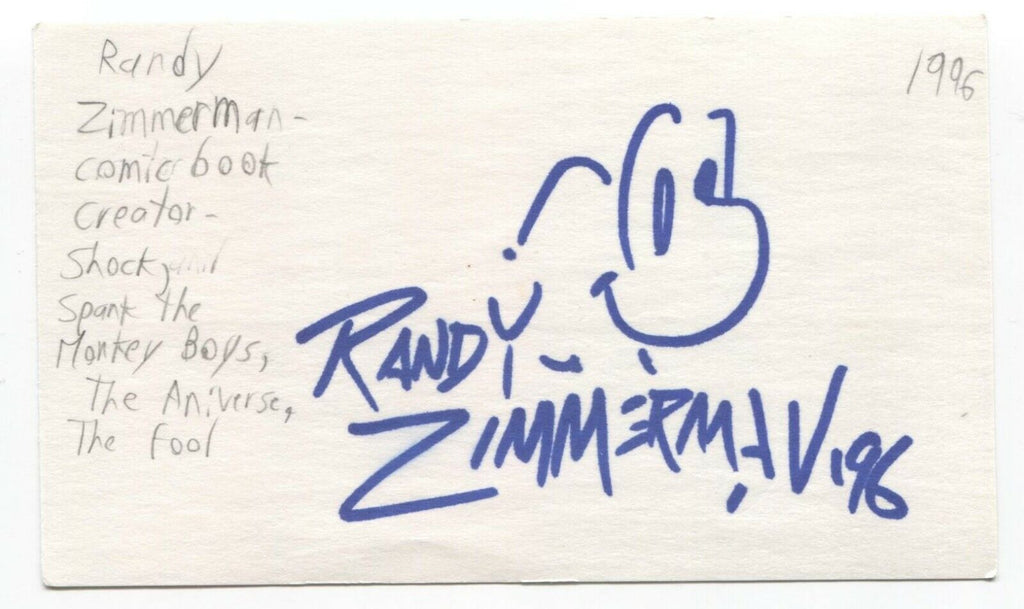 Randy
Zimmerman-
comic book
creator-
Shock
Spank the
Monkey Boys,
The Aniverse,
The Fool
1996
RANDY
ZIMMERMAN '96